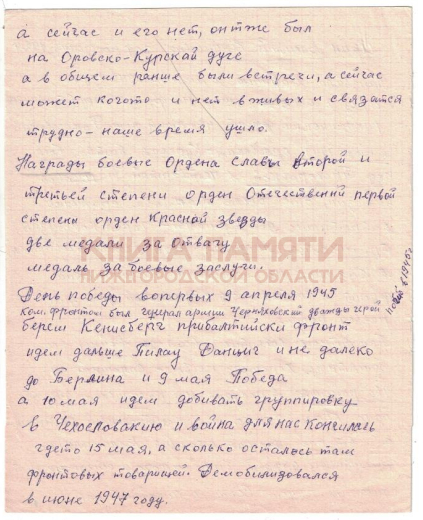 а сейчас и его нет, онтже был
на Оровско-Курской дуге
а в общем раньше были встречи, а сейчас
может когото и нет в живых и связатся
трудно - наше время ушло.
Награды боевые Ордена славы Второй и
третьей степени орден Отечественний первой
степени орден Красной звезды
две медали за Отвагу
КНИГА ПАМЯТИ
медаль за боевые заслуги.
НИЖЕГОРОДСКОЙ ОБЛАСТИ
День победы вопервых 9 апреля 1945
ком. фронтом был генерал армии Черняховский дважды герой
погиб в 1945 г
берем Кенисберг прибалтийски фронт
идем дальше Пилау Данциг и не далеко
до Берлина и 9 мая Победа
а 10 мая идем добивать группировку
в Чехословакию и война для нас кончилась
гдето 15 мая, а сколько осталось там
фронтовых товарощей. Демобилизовался
в июне 1947 году.